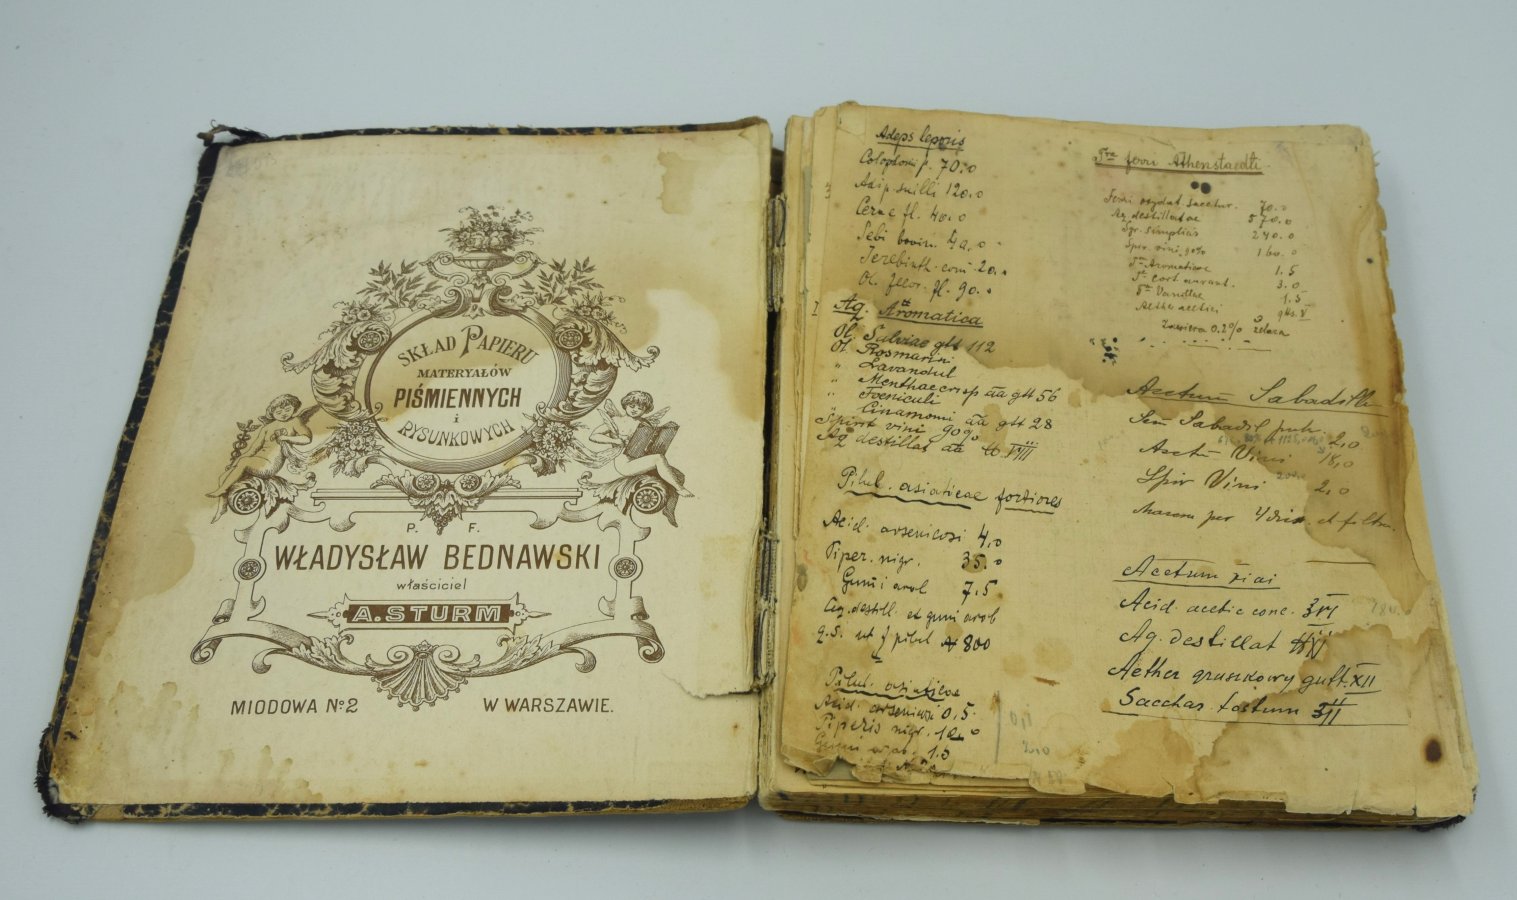 SKŁAD PAPIERU
MATERYAŁÓW
PIŚMIENNYCH
i
RYSUNKOWYCH
P. F.
WŁADYSŁAW BEDNAWSKI
właściciel
A. STURM
MIODOWA №2 W WARSZAWIE.
Adeps leporis
70.0
Adip. suilli 120.0
Cerae fl. 40.0
Sebi bovin. 40.0
Terebinth. com. 20.0
Ol. Jecor. fl. 90.0
Aq. Aromatica
Ol. Salviae gtt 112
Ol. Rosmarini
" Lavandul
" Menthae crisp aa gtt 56
" Foeniculi
" Cinamomi aa gtt 28
Spirit vini 90%
Aq destillat aa
Pilul. asiaticae fortiores
Acid. arsenicosi 4,0
Piper. nigr. 35.0
Gumi arab 7,5
Aq. destill. et gumi arab
q.s. ut f pilul № 800
Pilul. asiaticae
Acid. arsenicosi 0,5
Piperis nigr. 10.0
Gumi arab. 1.0
0,1
2,0
Tra ferri Athenstaedti
Ferri oxydat. sacchar. 70.0
Aq destillatae 570.0
Syr. simplicis 240.0
Spir. vini 90% 160.0
Tr Aromaticae 1.5
Tr cort aurant. 3.0
Tr Vanillae 1.5
Aether acetici gtts. V
Zawiera 0.2% żelaza
Acetum Sabadilli
Sem Sabadil pulv. 2,0
Acetum Vini 18,0
Spir Vini 2,0
et filtr.
Acetum
Acid. acetic conc. ʒVI
Aq. destillat
Aether gruszkowy gutt. XII
Sacchar tostum ʒII